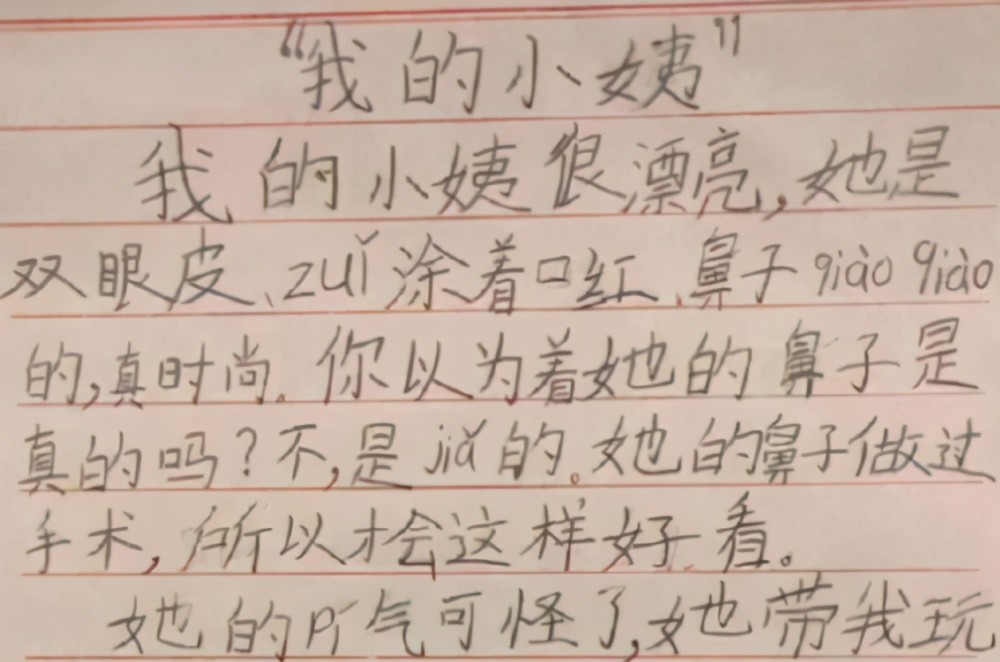 “我的小姨”
我的小姨很漂亮,她是
双眼皮、zuǐ涂着口红、鼻子qiào qiào
的,真时尚.你以为着她的鼻子是
真的吗?不,是jiǎ的。她的鼻子做过
手术,所以才会这样好看。
她的pí气可怪了,她带我玩